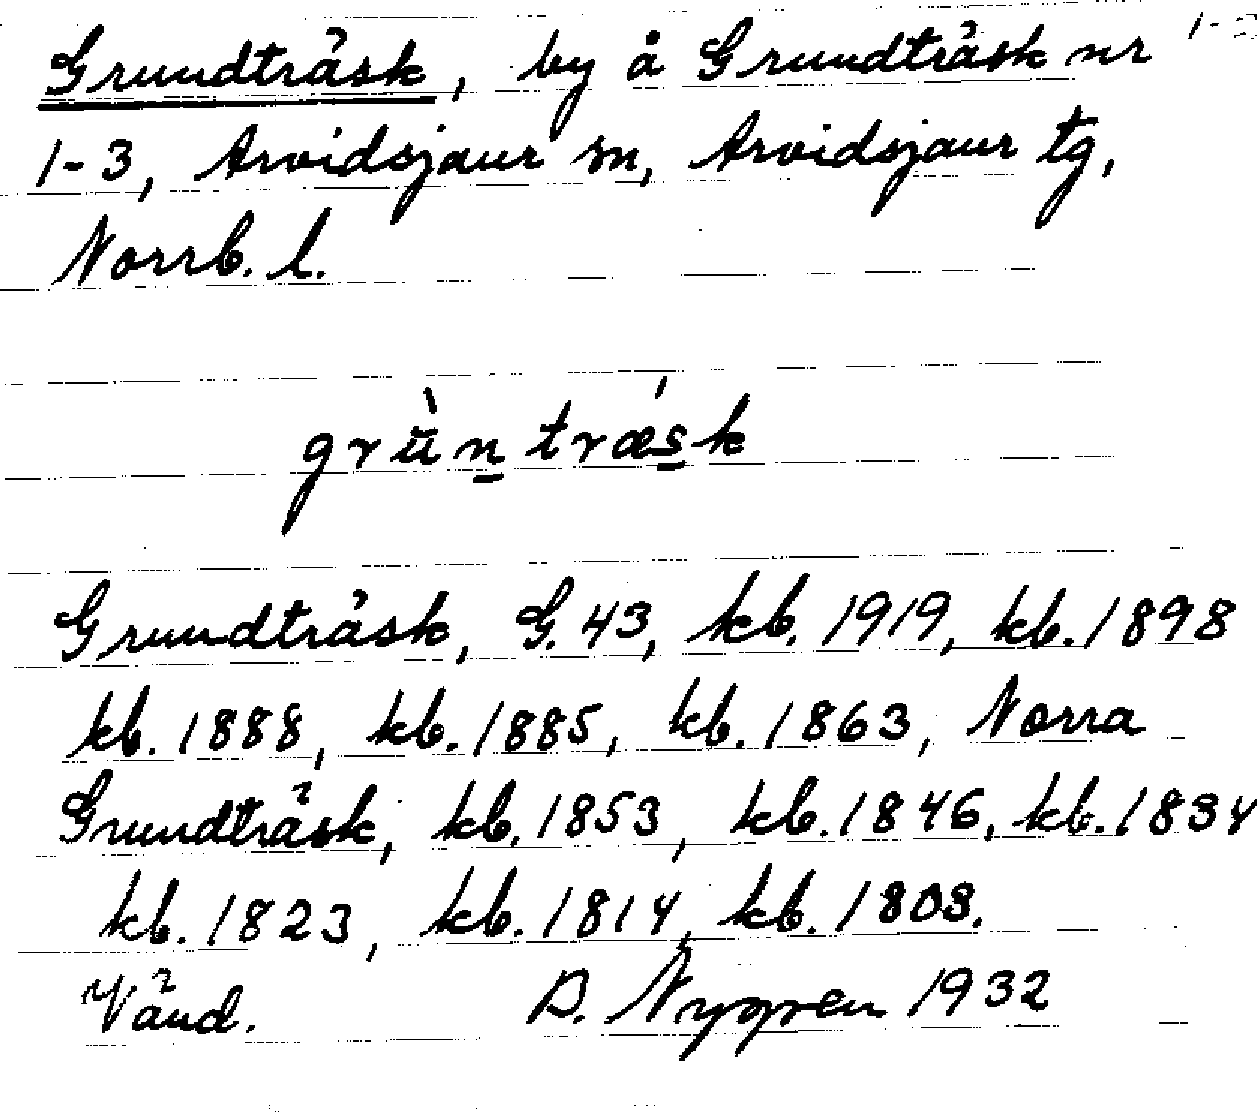 Grundträsk, by å Grundträsk nr
1-3, Arvidsjaur sn, Arvidsjaur tg,
Norrb. l.
grù̄n̲træ´s̲k
Grundträsk, G. 43, kb. 1919, kb. 1898
kb. 1888, kb. 1885, kb. 1863, Norra
Grundträsk, kb. 1853, kb. 1846, kb. 1834
kb. 1823, kb. 1814, kb. 1808.
Vänd. D. Nygren 1932